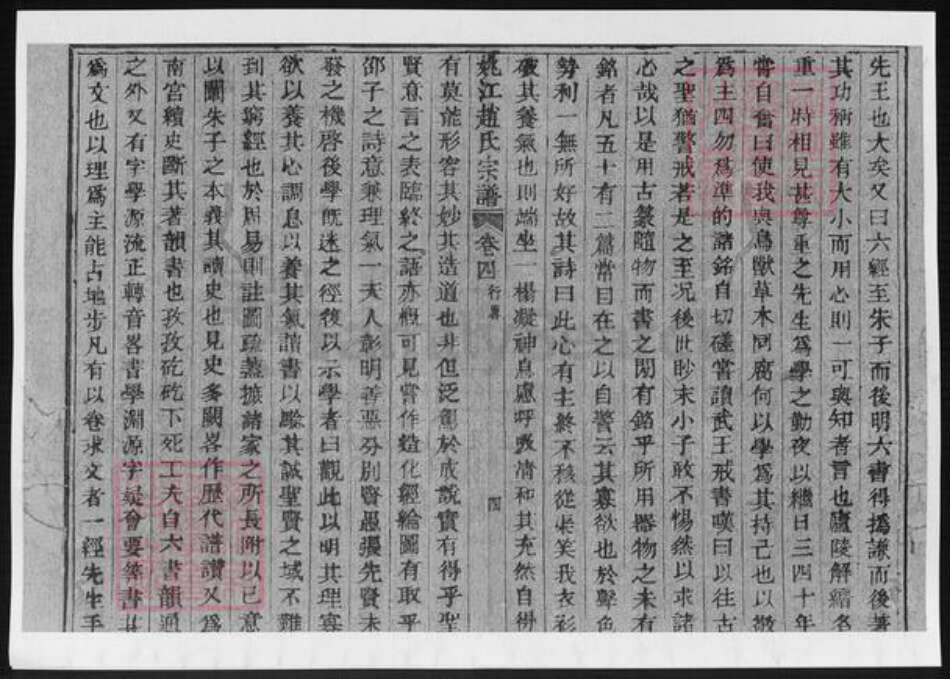 先王也大矣又曰六經至朱子而後明六書得撝謙而後著
其功稱雖有大小而用心則一可與知者言也廬陵解縉名
重一時相見甚尊重之先生爲學之勤夜以繼日三四十年
嘗自奮曰使我與鳥獸草木同腐何以學爲其持己也以敬
爲主四勿爲準的諸銘自切磋嘗讀武王戒書嘆曰以往古
之聖猶警戒若是之至况後世眇末小子敢不惕然以求諸
心哉以是用古篆隨物而書之間有銘乎所用器物之未有
銘者凡五十有二篇常目在之以自警云其寡欲也於聲色
勢利一無所好故其詩曰此心有主終不移從渠笑我衣衫
破其養氣也則端坐一榻凝神息慮呼吸清和其充然自得
姚江趙氏宗譜 卷四 行畧 四
有莫能形容其妙其造道也非但泛窺於成說實有得乎聖
賢意言之表臨終之語亦槪可見嘗作造化經綸圖有取乎
邵子之詩意兼理氣一天人彰明善惡分別賢愚擴先賢未
發之機啓後學旣迷之徑後以示學者曰觀此以明其理寡
欲以養其心調息以養其氣讀書以驗其誠聖賢之域不難
到其窮經也於周易則註圖疏蓍摭諸家之所長附以己意
以闡朱子之本義其讀史也見史多闕畧作歷代譜讚又爲
南宮續史斷其著韻書也孜孜矻矻下死工夫自六書韻通
之外又有字學源流正轉音畧書學淵源字疑會要等書其
爲文也以理爲主能占地步凡有以卷求文者一經先生手